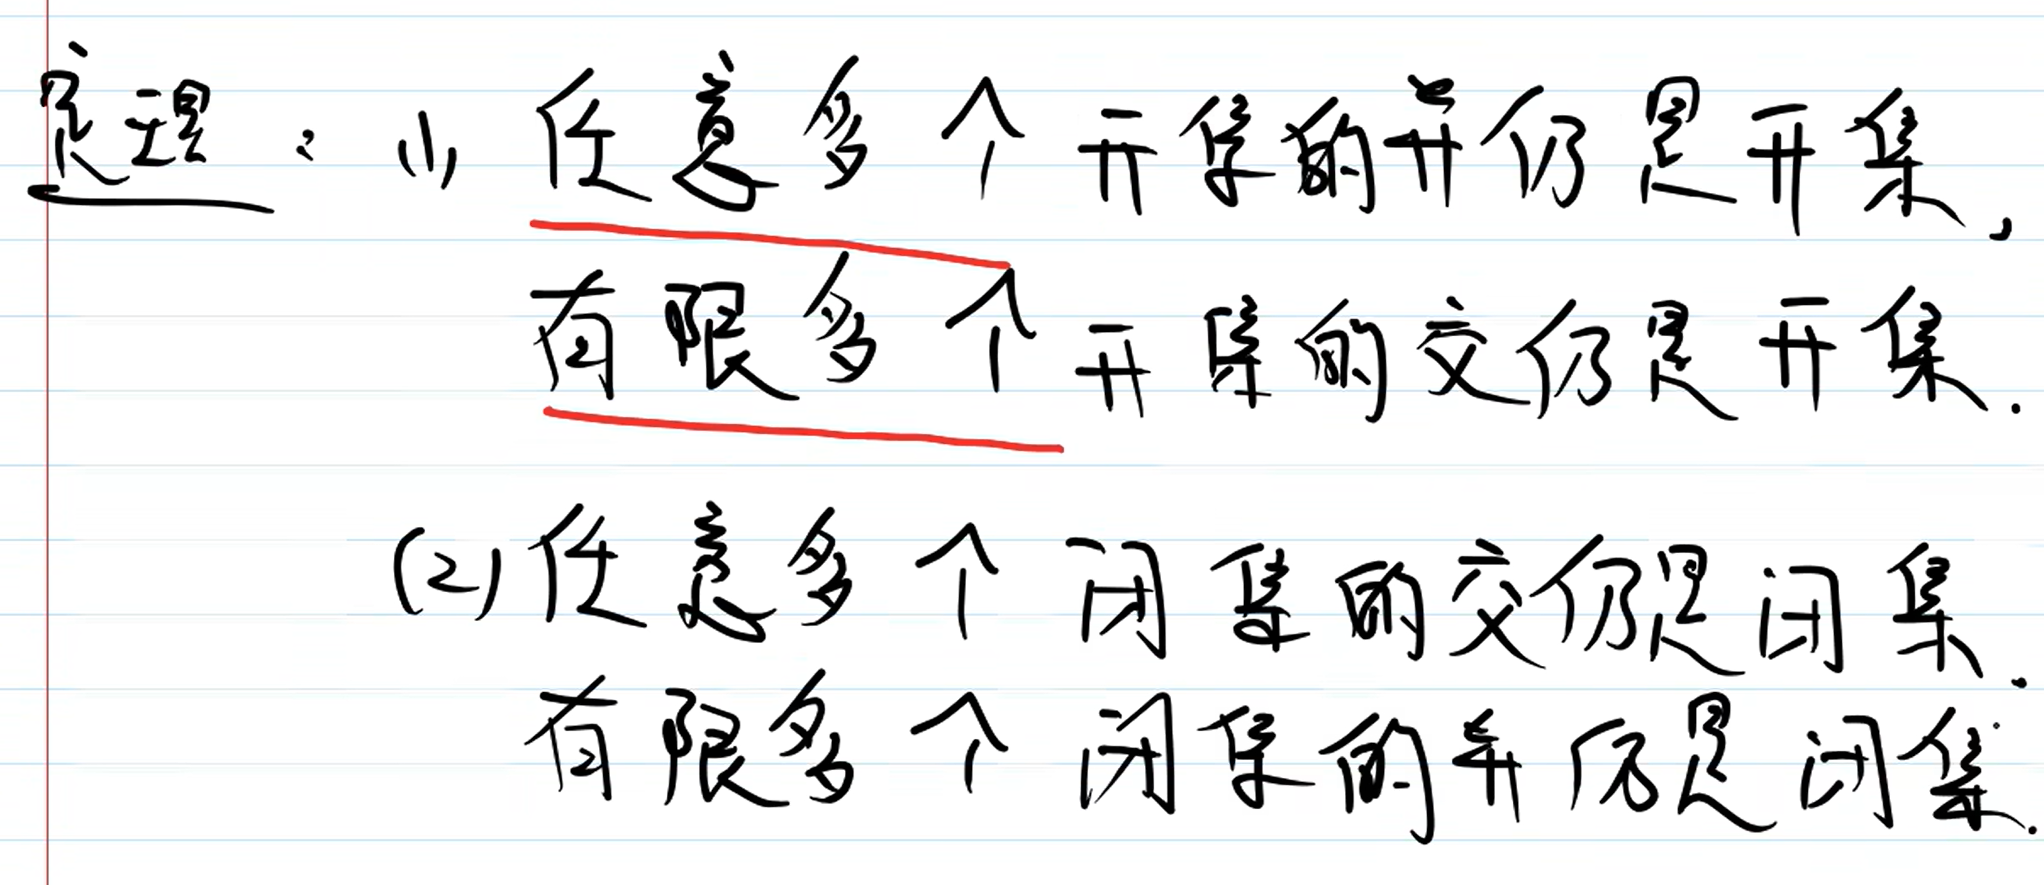 定理：(1) 任意多个开集的并仍是开集,
有限多个开集的交仍是开集.
(2) 任意多个闭集的交仍是闭集.
有限多个闭集的并仍是闭集.